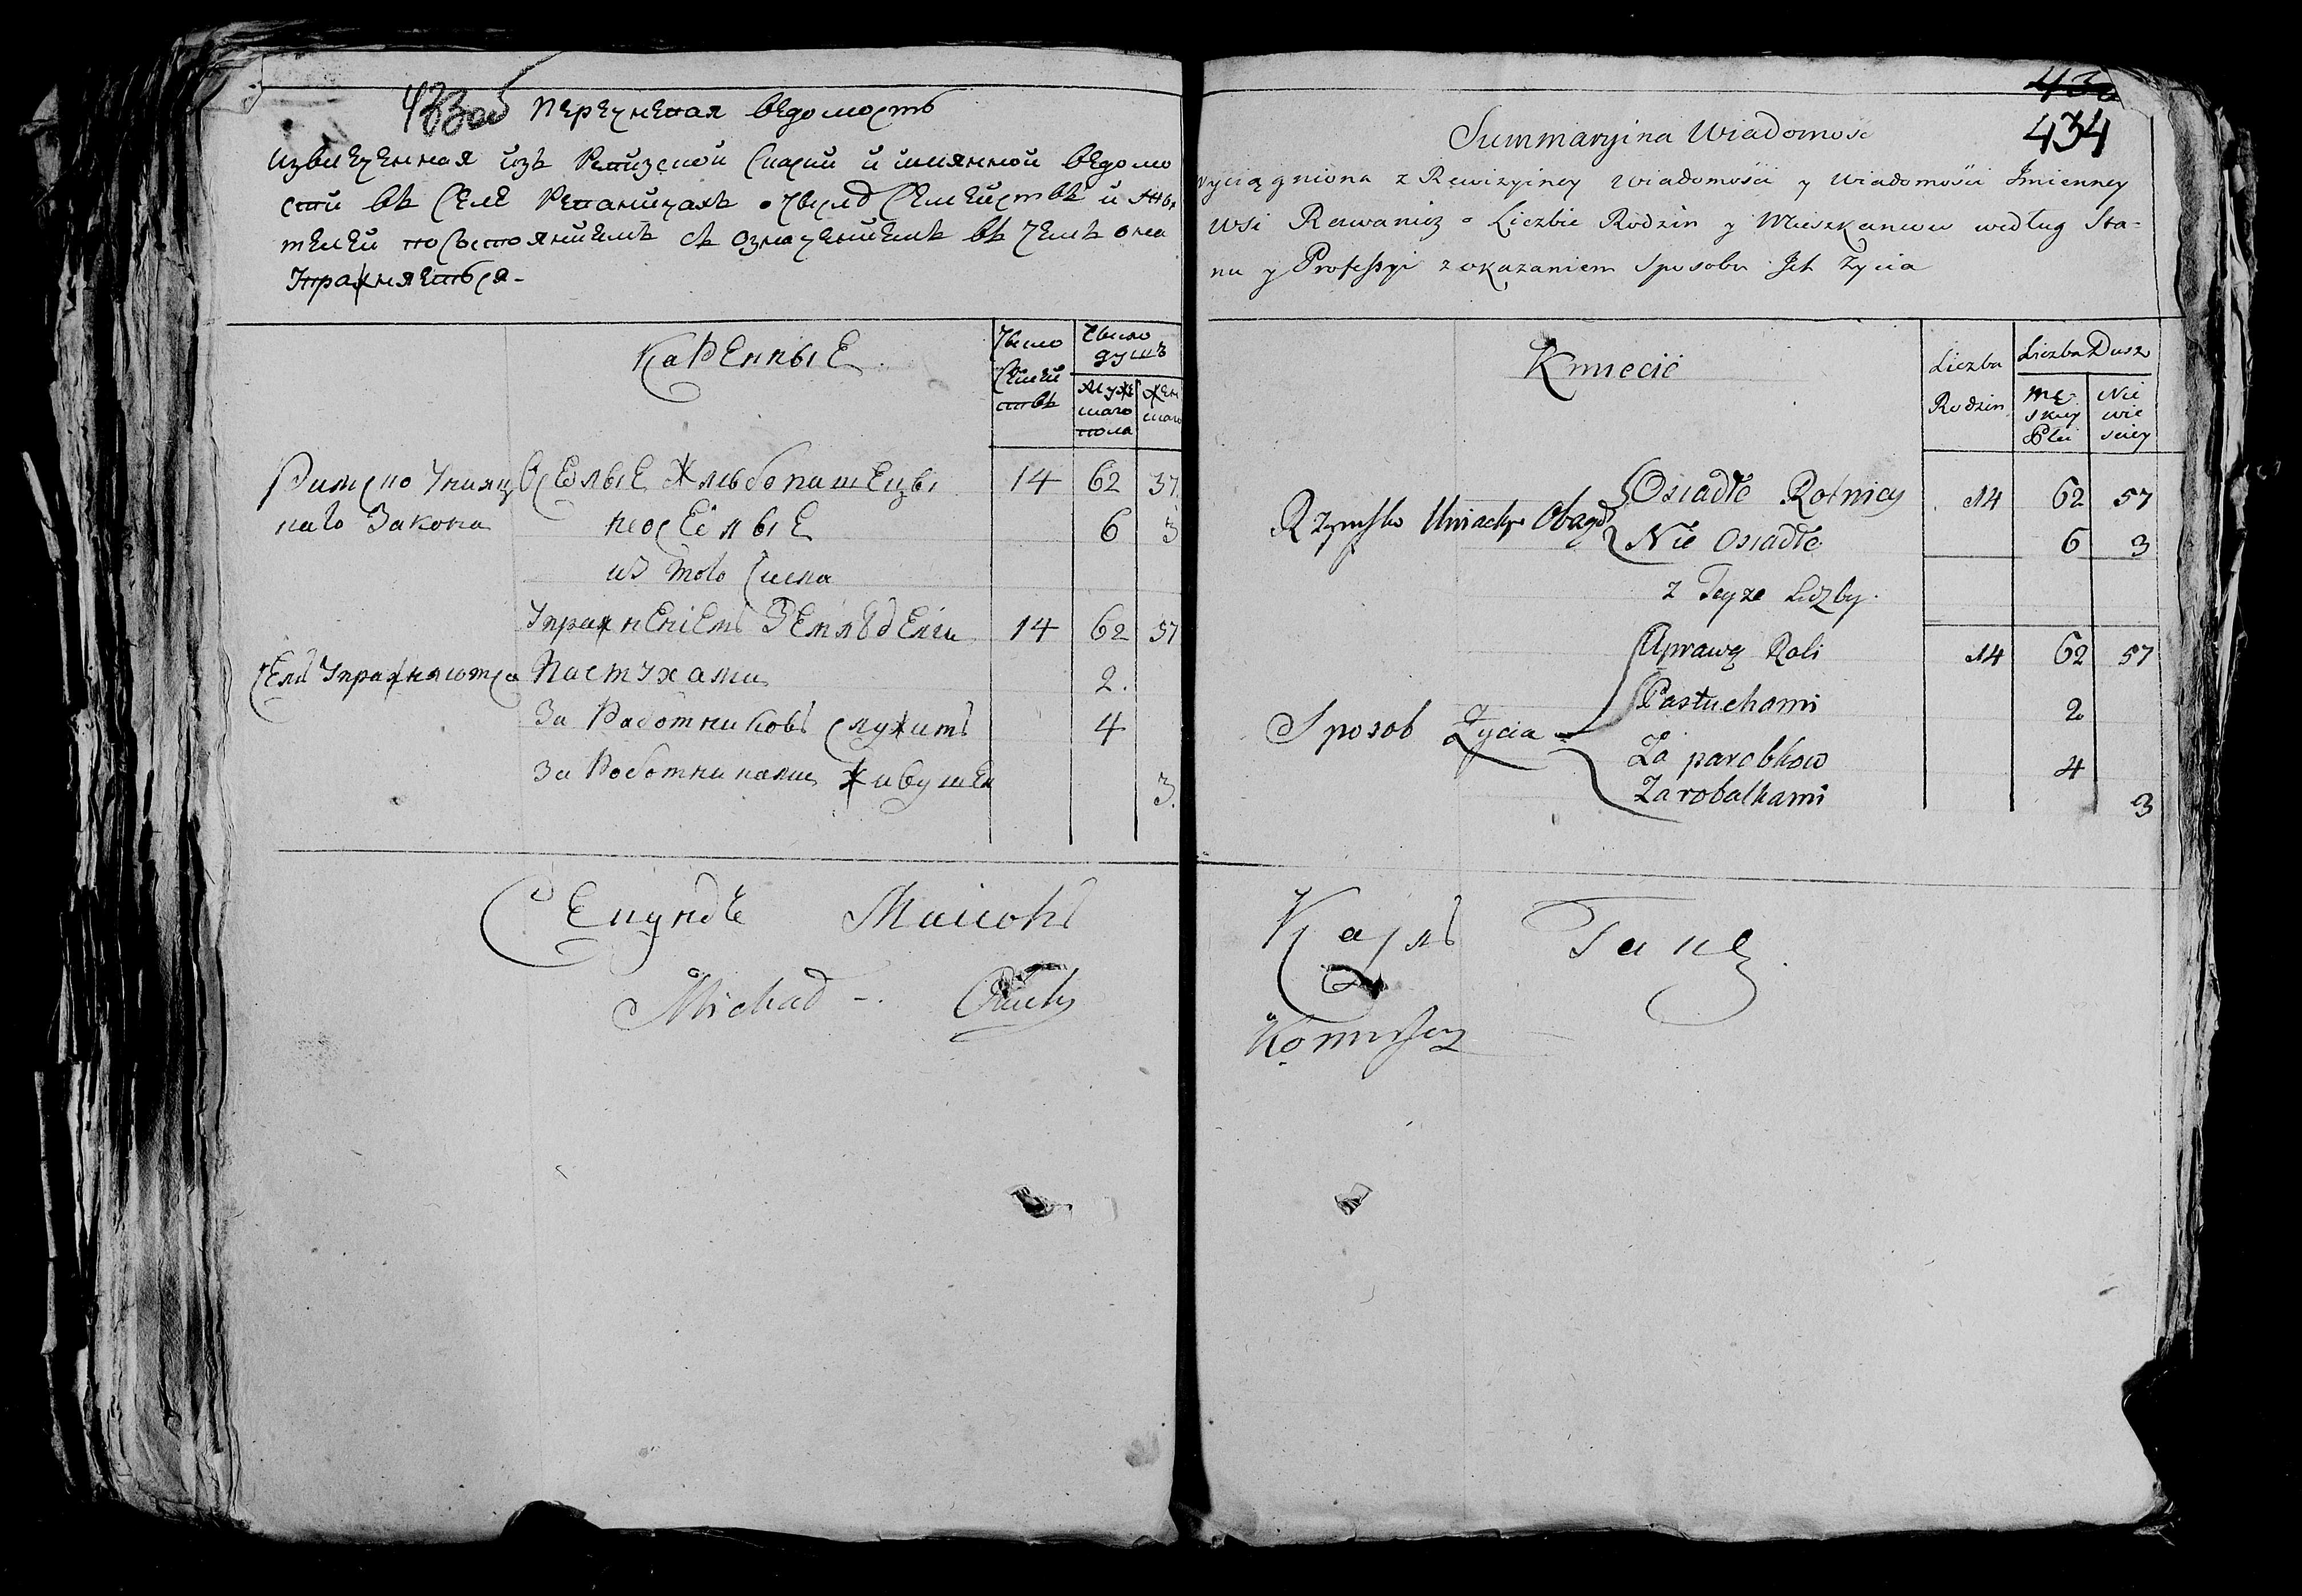 433об Перечневая ведомость
Извлеченная изъ Ревизской Скаски и имянной ведомо
сти въ Селе Реваничахъ о числе Семействъ и жи
телей по Состоянïемъ съ означенïемъ въ чемъ они
Упражняются.
Каренные
Число Семей ствъ
Число душъ
Мужескаго пола
Женскаго
Римско Унияц Оселые Хлебопашецы 14 62 57
каго Закона неоселые 6 3
из того Числа
Упражненiемъ Земледелiи 14 62 57
Семъ Упражняются Пастухами 2.
За Работниковъ служитъ 4
За Роботницами живущи 3.
Michał
435
434
Summaryina Wiadomość
wyciągniona z Rewizyiney wiadomości y Wiadomości Jmienney
Wsi Rawanicz o Liczbie Rodzin y Mieszkancow według Sta-
nu y Professyi z okazaniem Sposobu Jch Zycia
Kmiecie
Liczba Rodzin
Liczba Dusz
Mę skiey Płci
Nie wie sciey
Rzymsko Uniackie Obrządku Osiadłe Rolnicy 14 62 57
Nie Osiadłe 6 3
z Teyze Liczby.
Uprawą Roli 14 62 57
Sposob Zycia Pastuchami 2
Za parobkow 4
Zarobalkami 3
Карлъ Ганс